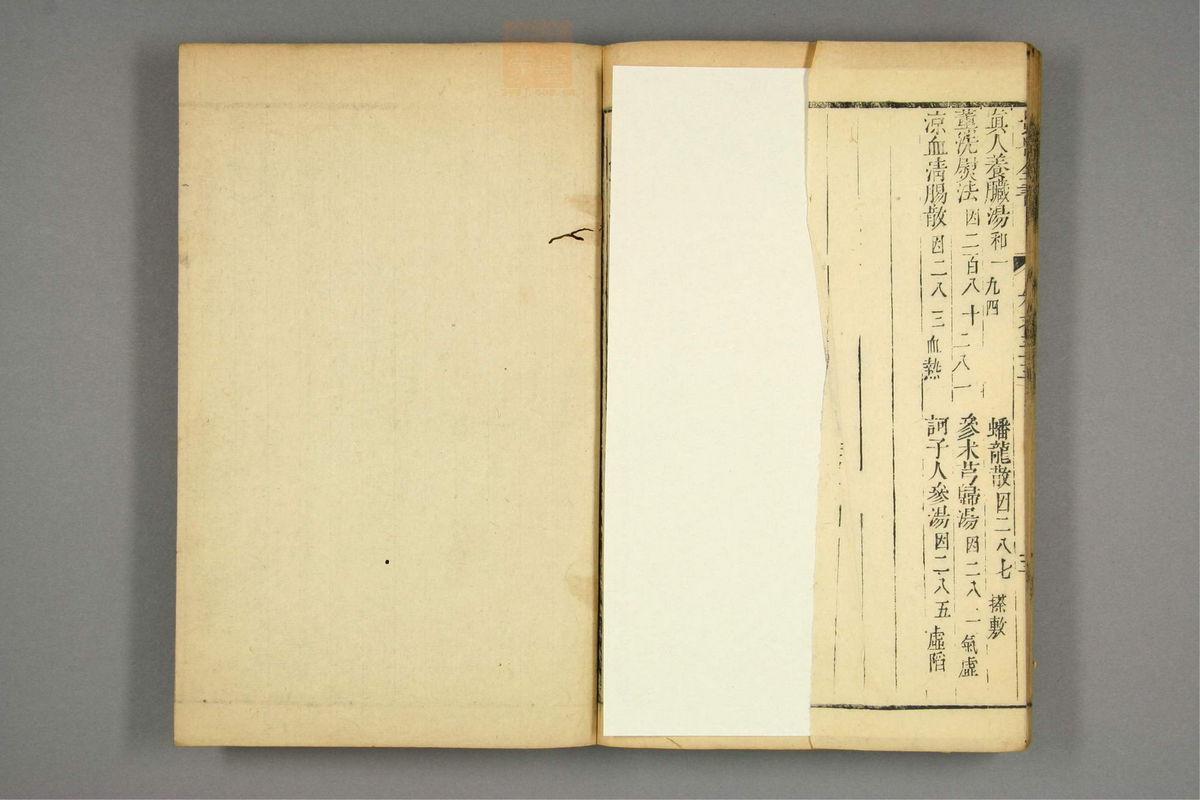 眞人養臟湯 和一九四
蟠龍散 因二八七 搽敷
薰洗熨法 因二百八十二八一
參朮芎歸湯 因二八一 氣虛
凉血淸腸散 因二八三 血熱
訶子人參湯 因二八五 虛陷